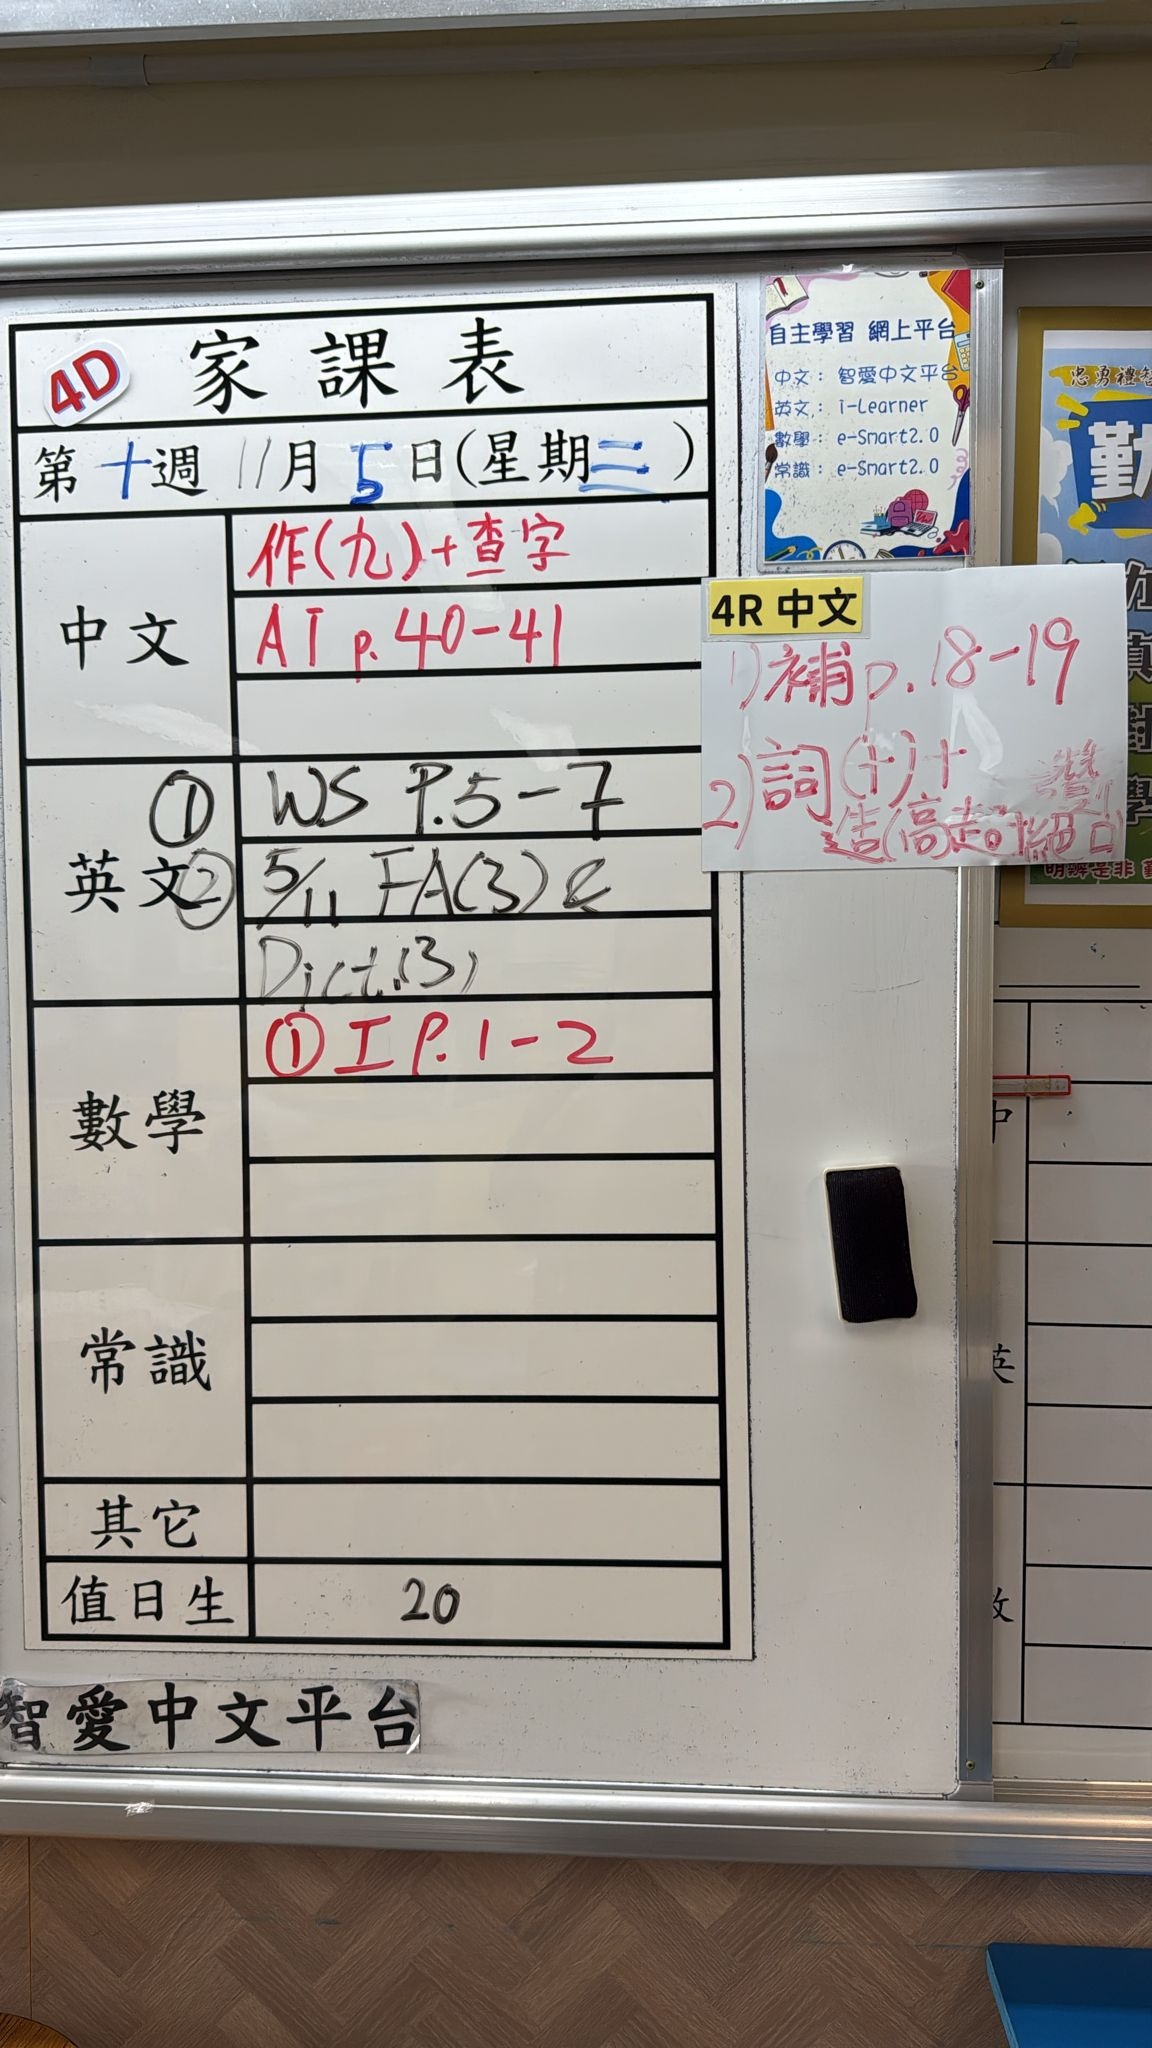 4D 家課表
第十週 11月5日(星期三)
中文
作(九)+查字
AI p.40-41
英文
① WS P.5-7
② 5/11 FA(3) &
Dict.(3)
數學
① I P.1-2
常識
其它
值日生 20
智愛中文平台
自主學習 網上平台
中文: 智愛中文平台
英文: i-Learner
數學: e-Smart2.0
常識: e-Smart2.0
4R 中文
1) 補p.18-19
2) 詞(十)+
造(高超、讚不絕口)
忠勇禮智
勤
明辨是非 勤
中
英
數